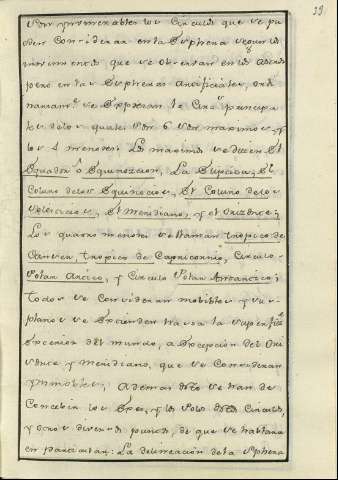 39
son ynumerables los Circulos que se pu
eden Considerar en la Esphera segun los
movimientos que se observan en los Astros
pero en las Espheras Artificiales, ordi
nariamte se Expresan 10 Circs principa
les delos quales son 6 los maximos y
los 4 menores: Los maximos se dicen El
Equador ô Equinoccial, La Ecliptica, El
Coluro delos Equinocios, El Coluro delos
Solsticios, El Meridiano, y el Orizonte;
Los quatro menores se llaman tropico de
Cancer, tropico de Capricornio, Circulo
Polar Artico, y Circulo Polar Antartico;
todos se Consideran mobibles y sus
planos se Extienden hasta la superfie
Exterior del mundo, a Excepcion del Ori
zonte y Meridiano, que se Consideran
ynmobles, Ademas desto se han de
Concebir los Exes, y los Polos destos Circulos,
y otros diversos puntos, de que se hablara
en particular: La delineacion dela Esphera